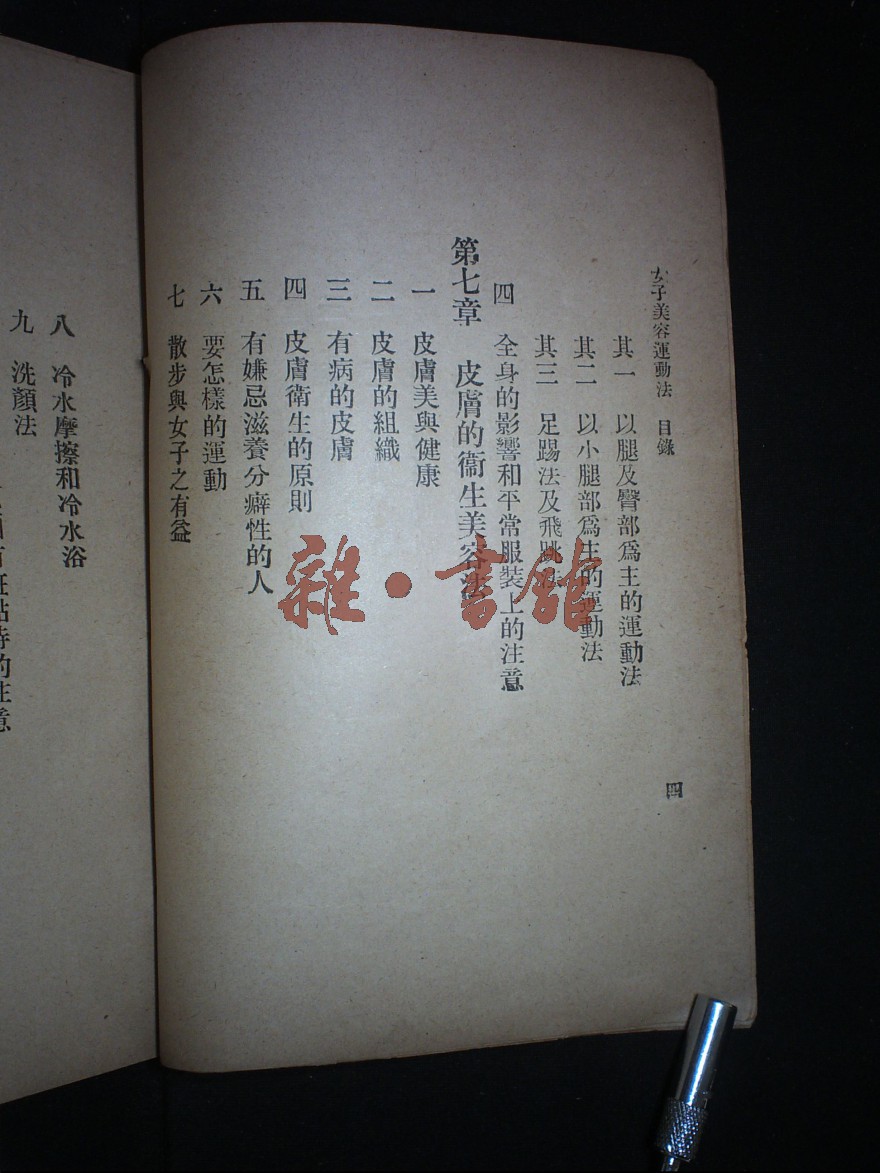 女子美容運動法 目錄
其一 以腿及臀部爲主的運動法
其二 以小腿部爲主的運動法
其三 足踢法及飛跳法
四 全身的影響和平常服裝上的注意
第七章 皮膚的衞生美容法
一 皮膚美與健康
二 皮膚的組織
三 有病的皮膚
四 皮膚衛生的原則
五 有嫌忌滋養分癖性的人
六 要怎樣的運動
七 散步與女子之有益
四
八 冷水摩擦和冷水浴
九 洗顏法
的注意
雜·書館